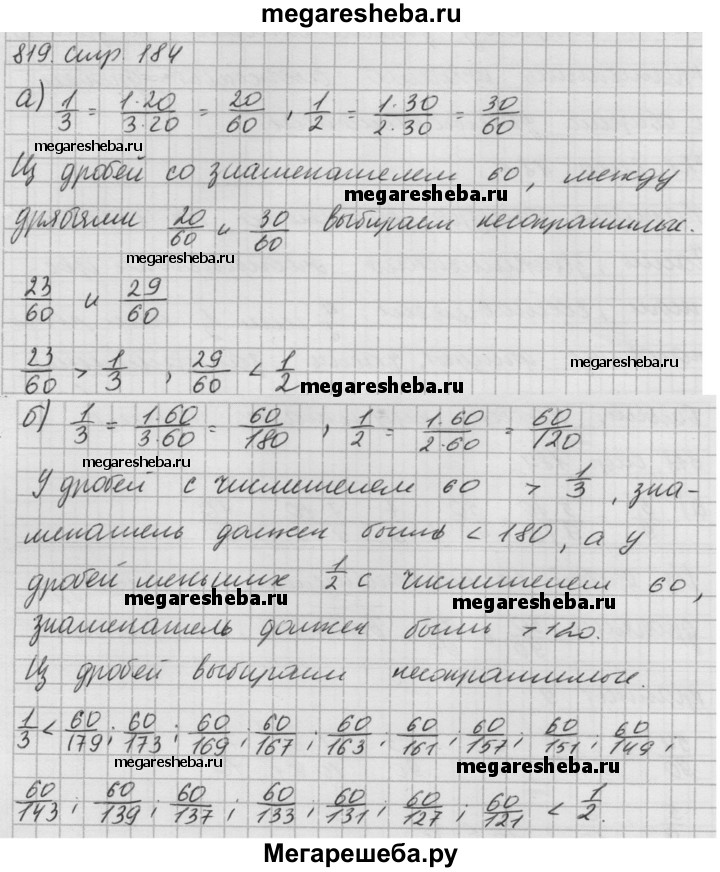 megaresheba.ru
819. стр. 184
а) 1/3 = 1·20/3·20 = 20/60 , 1/2 = 1·30/2·30 = 30/60
megaresheba.ru
Из дробей со знаменателем 60, между
megaresheba.ru
дробями 20/60 и 30/60 выбираем несократимых.
megaresheba.ru
23/60 и 29/60
23/60 > 1/3 , 29/60 < 1/2
megaresheba.ru
megaresheba.ru
б) 1/3 = 1·60/3·60 = 60/180 , 1/2 = 1·60/2·60 = 60/120
megaresheba.ru
У дробей с числителем 60 > 1/3, зна-
менатель должен быть < 180, а у
дробей меньших 1/2 с числителем 60,
megaresheba.ru megaresheba.ru
знаменатель должен быть > 120.
Из дробей выбираем несократимые.
1/3 < 60/179; 60/173; 60/169; 60/167; 60/163; 60/161; 60/157; 60/151; 60/149;
megaresheba.ru megaresheba.ru
60/143; 60/139; 60/137; 60/133; 60/131; 60/127; 60/121 < 1/2.
Мегарешеба.ру